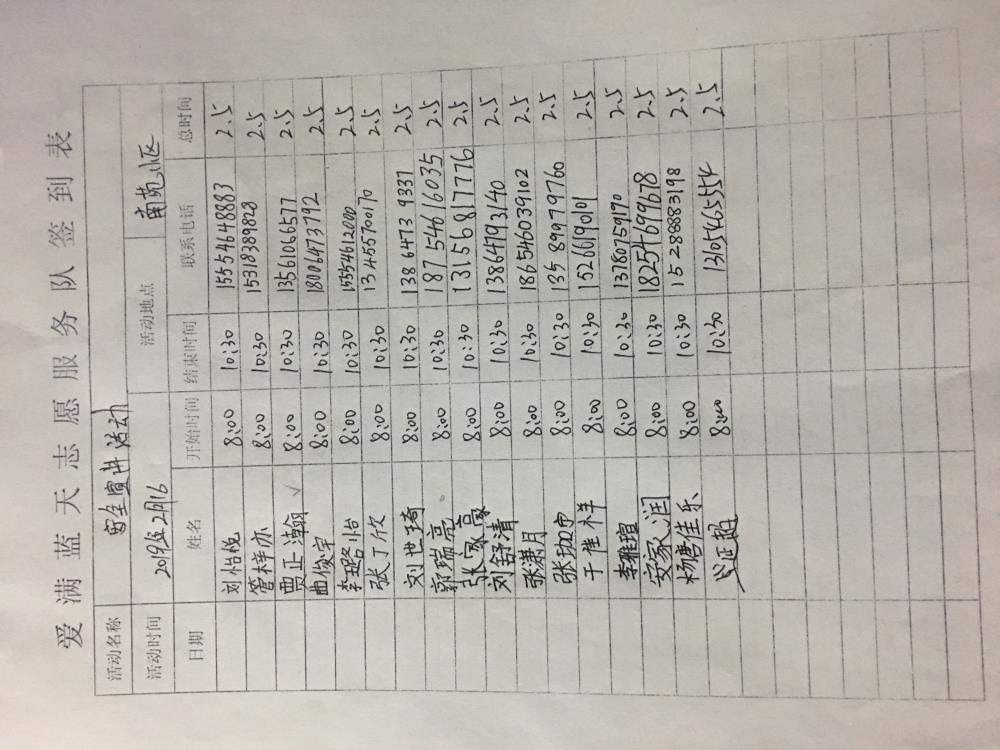 爱满蓝天志愿服务队签到表
活动名称 安全宣讲活动
活动时间 2019年2月16 活动地点 南苑小区
日期 姓名 开始时间 结束时间 联系电话 总时间
刘怡悦 8:00 10:30 15554648883 2.5
管梓亦 8:00 10:30 15318389828 2.5
贾止瀚 ✓ 8:00 10:30 13561066577 2.5
曲俊宇 8:00 10:30 18006473792 2.5
李璐怡 8:00 10:30 15554612000 2.5
张丁欣 8:00 10:30 13455700170 2.5
刘世琦 8:00 10:30 138 6473 9337 2.5
郭瑞亮 8:00 10:30 187 546 16035 2.5
张家豪 8:00 10:30 13156817776 2.5
刘舒清 8:00 10:30 13864793140 2.5
张潇月 8:00 10:30 186546039102 2.5
张珈宁 8:00 10:30 135 8997 9760 2.5
于佳祥 8:00 10:30 15266190101 2.5
李雅瑄 8:00 10:30 13780759190 2.5
安家润 8:00 10:30 18254699678 2.5
杨唐佳乐 8:00 10:30 15288883198 2.5
8:00 10:30 13105465554 2.5